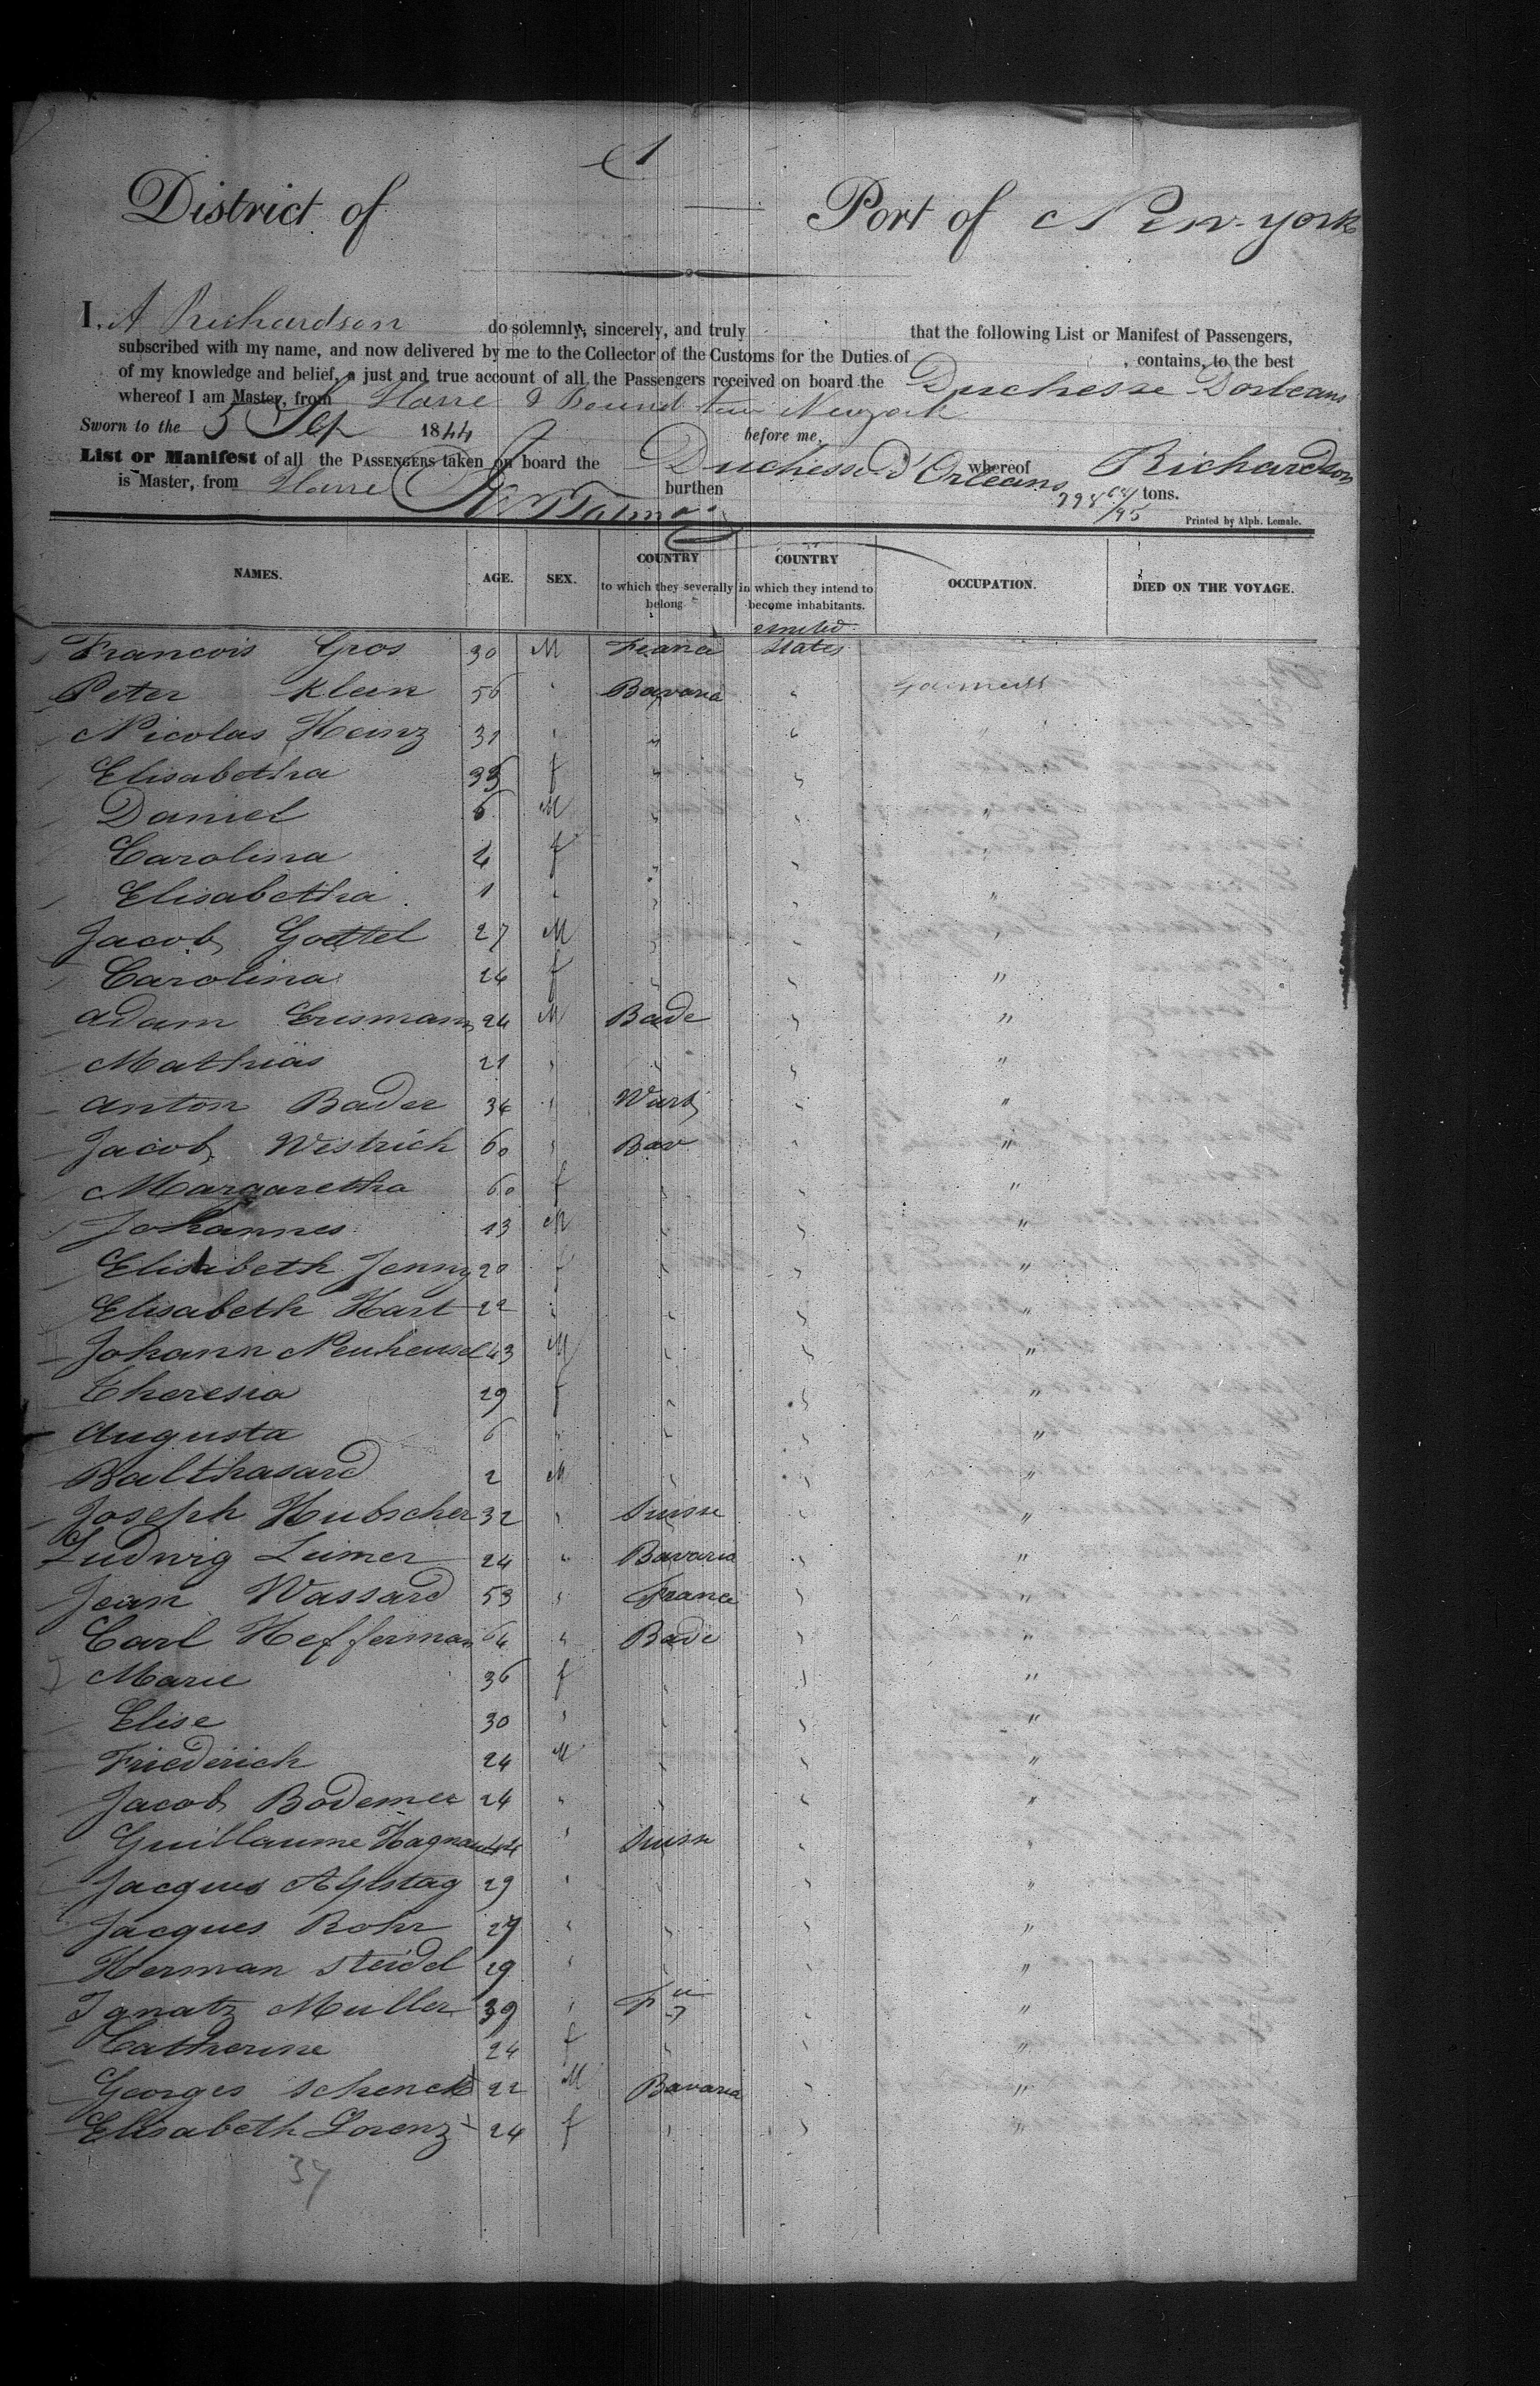 1
District of — Port of New-york
I, A Richardson do solemnly, sincerely, and truly that the following List or Manifest of Passengers,
subscribed with my name, and now delivered by me to the Collector of the Customs for the Duties of , contains, to the best
of my knowledge and belief, a just and true account of all the Passengers received on board the Duchesse Dorleans
whereof I am Master, from Havre & bound New york
Sworn to the 5 Sep 1844 before me,
List or Manifest of all the PASSENGERS taken on board the Duchesse d'Orleans whereof Richardson
is Master, from Havre burthen 798 64/95 tons.
Printed by Alph. Lemale.
NAMES. AGE. SEX. COUNTRY to which they severally belong COUNTRY in which they intend to become inhabitants. OCCUPATION. DIED ON THE VOYAGE.
Francois Gros 30 M France United States
Peter Klein 56 " Bavaria "
Nicolas Heinz 31 " " "
Elisabetha 35 f " "
Daniel 6 M " "
Carolina 4 f " "
Elisabetha 1 " " " "
Jacob Goettel 27 M " " "
Carolina 24 f " " "
Adam Erismann 24 M Bade " "
Mathias 21 " " " "
Anton Bader 34 " Wurt " "
Jacob Westrich 60 " Bav " "
Margaretha 60 f " " "
Johannes 13 M " " "
Elisabeth Jenny 20 f " " "
Elisabeth Hart 22 " " " "
Johann Neuheusel 43 M " " "
Theresia 29 f " " "
Augusta 6 " " " "
Balthasard 2 M " " "
Joseph Hubscher 32 " Suisse " "
Ludwig Leimer 24 " Bavaria " "
Jean Wassard 53 " France " "
Carl Hefferman 64 " Bade " "
Marie 36 f " " "
Elise 30 " " " "
Friederich 24 M " " "
Jacob Bodemer 24 " " " "
Guillaume Hagnau 44 " Suisse " "
Jacques Aplstag 29 " " "
Jacques Rohr 27 " " " "
Herman Steidel 29 " " " "
Ignatz Muller 39 " " "
Catherine 24 f " " "
Georges Schenck 22 M Bavaria " "
Elisabeth Lorenz 24 f " " "
37